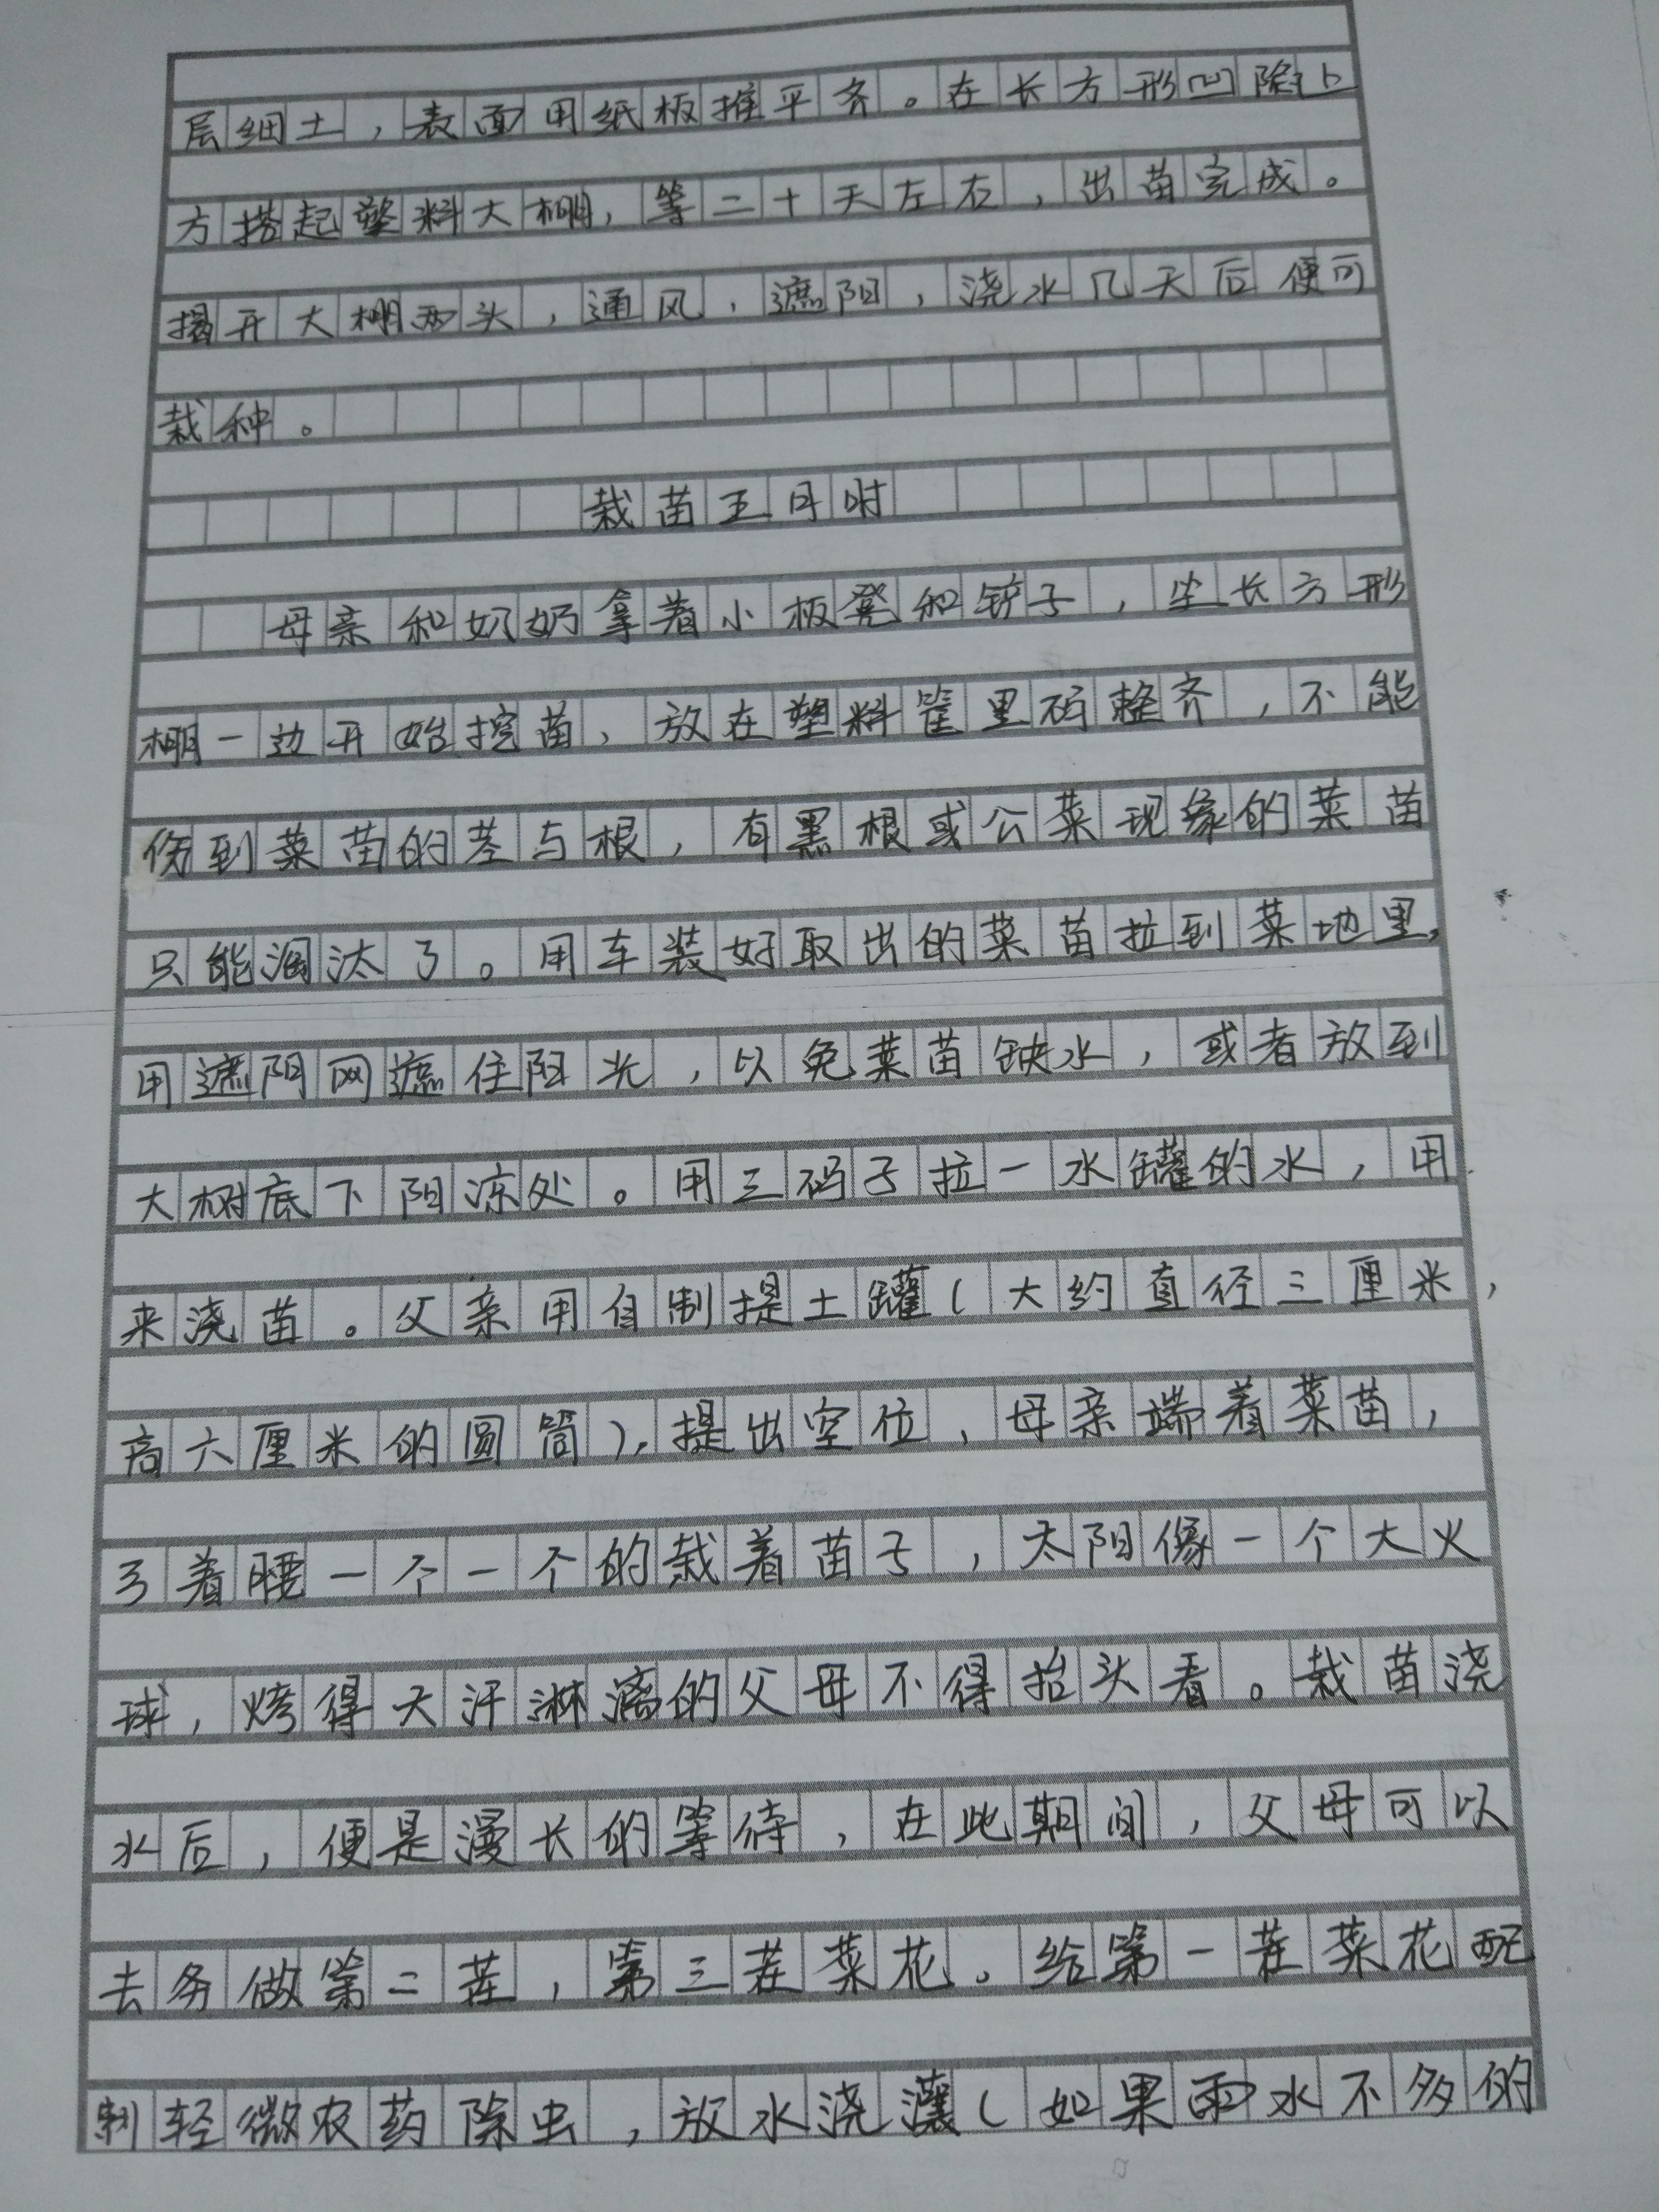 层细土，表面用纸板推平齐。在长方形凹陷上
方搭起塑料大棚，等二十天左右，出苗完成。
揭开大棚两头，通风，遮阳，浇水几天后便可
栽种。
栽苗五月时
母亲和奶奶拿着小板凳和铲子，坐长方形
棚一边开始挖苗，放在塑料筐里码整齐，不能
伤到菜苗的茎与根，有黑根或公菜现象的菜苗
只能淘汰了。用车装好取出的菜苗拉到菜地里，
用遮阳网遮住阳光，以免菜苗缺水，或者放到
大树底下阳凉处。用三码子拉一水罐的水，用
来浇苗。父亲用自制提土罐（大约直径三厘米，
高六厘米的圆筒），提出空位，母亲端着菜苗，
弓着腰一个一个的栽着苗子，太阳像一个大火
球，烤得大汗淋漓的父母不得抬头看。栽苗浇
水后，便是漫长的等待，在此期间，父母可以
去务做第二茬，第三茬菜花。给第一茬菜花配
制轻微农药除虫，放水浇灌（如果雨水不多的